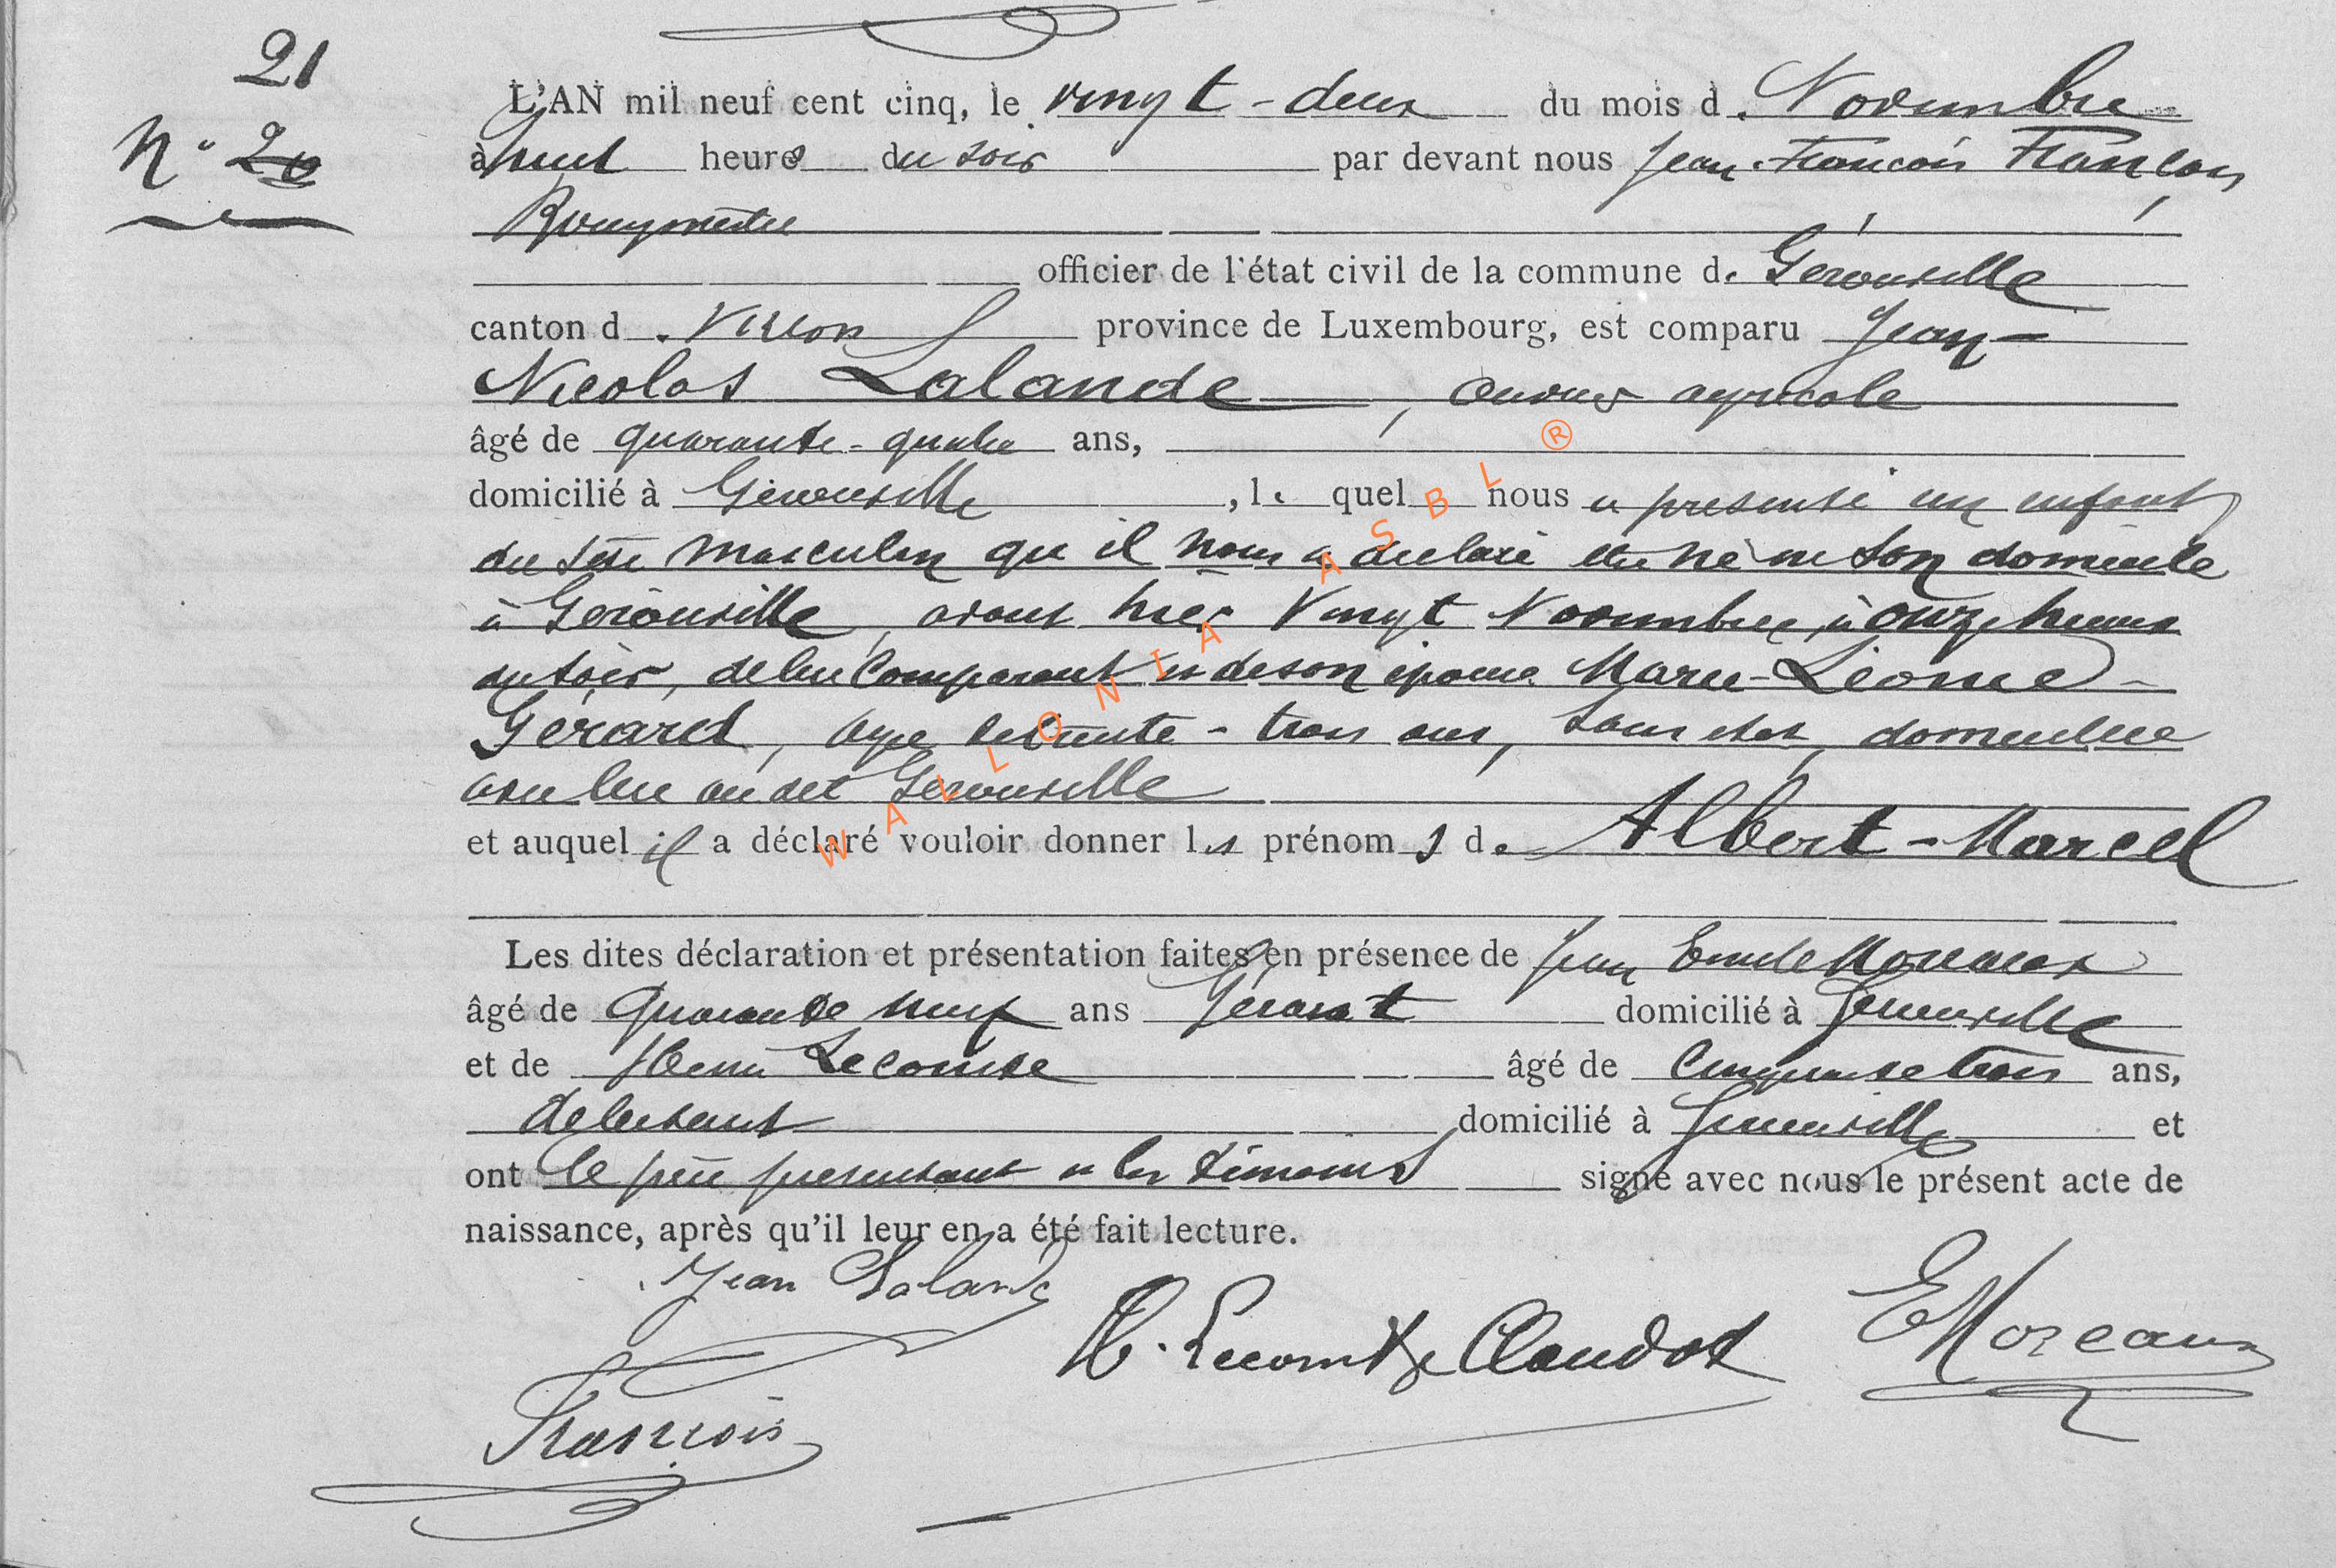 21
N° 20
L'AN mil neuf cent cinq, le vingt-deux du mois de Novembre
à huit heures du soir par devant nous Jean-François François,
Bourgmestre
officier de l'état civil de la commune de Gérouville
canton de Virton province de Luxembourg, est comparu Jean-
Nicolas Lalande, ouvrier agricole
âgé de quarante-quatre ans,
domicilié à Gérouville, lequel nous a présenté un enfant
du sexe masculin qu'il nous a déclaré être né en son domicile
à Gérouville, avant hier vingt Novembre, à onze heures
du soir, de lui Comparant et de son épouse Marie-Léonie-
Gérard, âgée de trente-trois ans, sans état, domiciliée
avec lui au dit Gérouville
et auquel il a déclaré vouloir donner les prénoms de Albert-Marcel
Les dites déclaration et présentation faites en présence de Jean Emile Moreaux
âgé de quarante neuf ans Gérant domicilié à Gérouville
et de Henri Lecomte âgé de cinquante trois ans,
débitant domicilié à Gérouville et
ont le père présentant et les témoins signé avec nous le présent acte de
naissance, après qu'il leur en a été fait lecture.
Jean Lalande
H. Lecomte Claudot
E Moreaux
François
WALLONIA ASBL ®